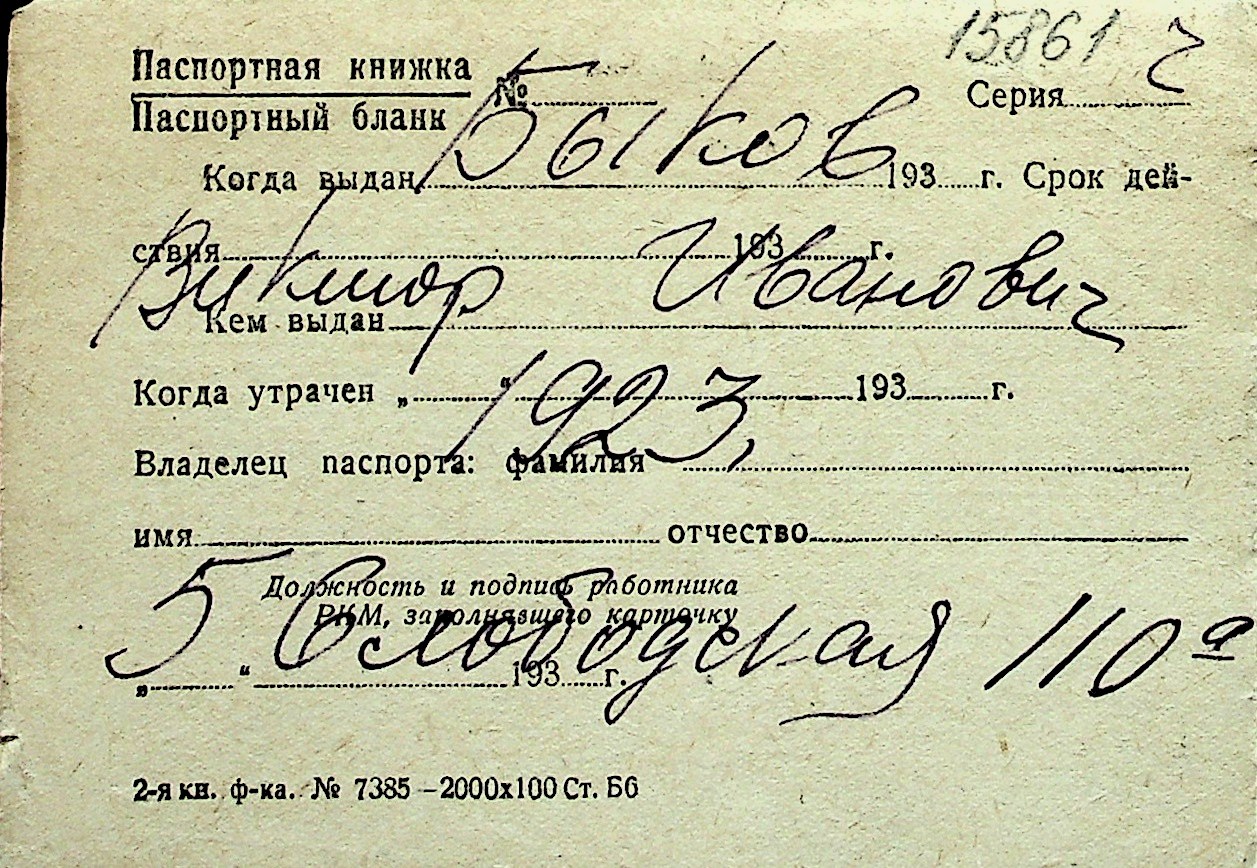 15861 г
Паспортная книжка
Паспортный бланк
№ Серия
Быков
Когда выдан 193 г. Срок дей-
ствия 193 г.
Виктор Иванович
Кем выдан
Когда утрачен „ “ 193 г.
1923,
Владелец паспорта: фамилия
имя отчество
Должность и подпись работника
РКМ, заполнявшего карточку
Б. Слободская 110а
„ “ 193 г.
2-я кн. ф-ка. № 7385 –2000х100 Ст. Б6